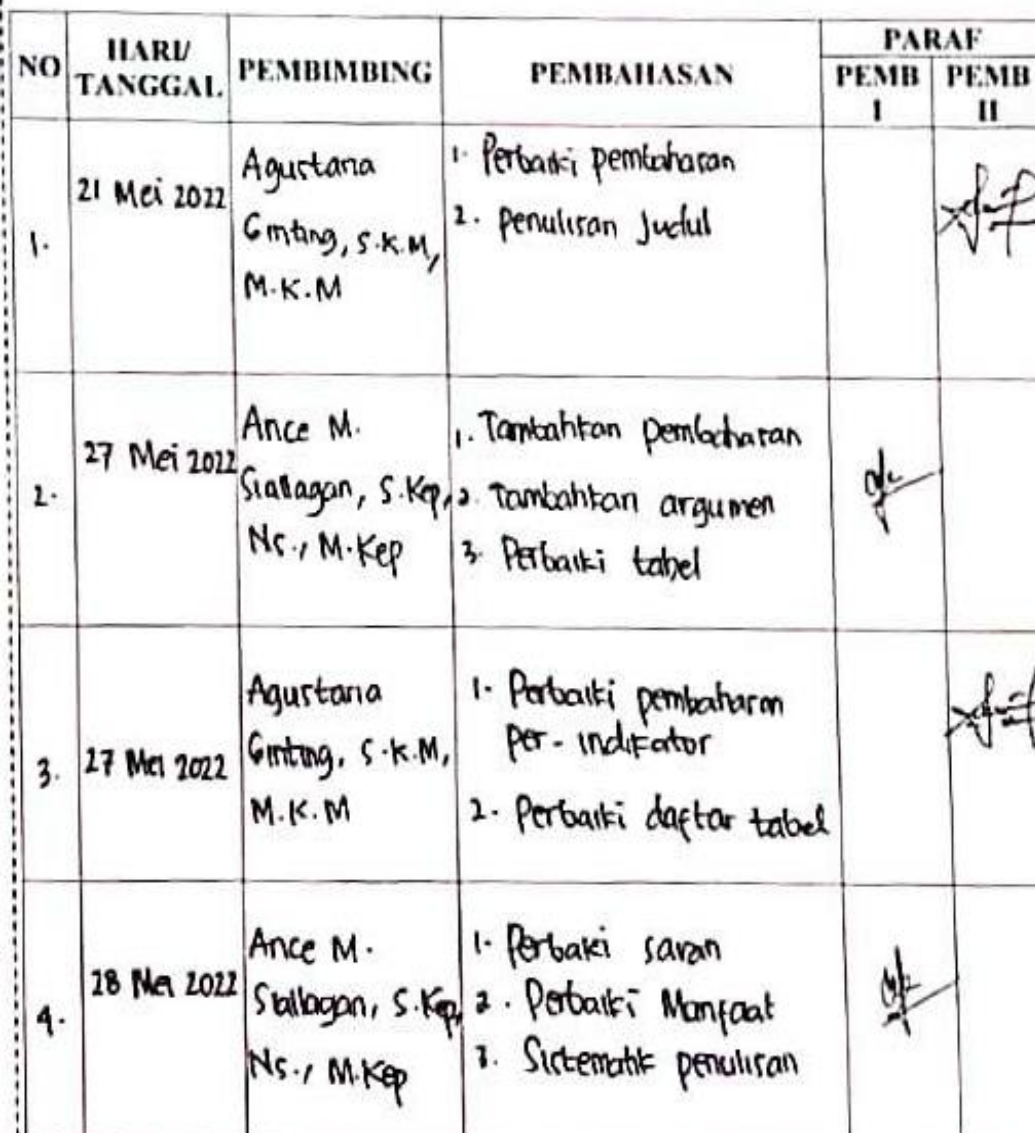 NO
HARI/
TANGGAL
PEMBIMBING
PEMBAHASAN
PARAF
PEMB
I
PEMB
II
1.
21 Mei 2022
Agustana
Ginting, S.K.M,
M.K.M
1. Perbaiki pembahasan
2. Penulisan Judul
2.
27 Mei 2022
Ance M.
Siallagan, S.Kep,
Ns., M.Kep
1. Tambahkan pembahasan
2. Tambahkan argumen
3. Perbaiki tabel
3.
27 Mei 2022
Agustaria
Ginting, S.K.M,
M.K.M
1. Perbaiki pembahasan
per-indikator
2. Perbaiki daftar tabel
4.
28 Mei 2022
Ance M.
Siallagan, S.Kep,
Ns., M.Kep
1. Perbaiki saran
2. Perbaiki Manfaat
3. Sistematik penulisan